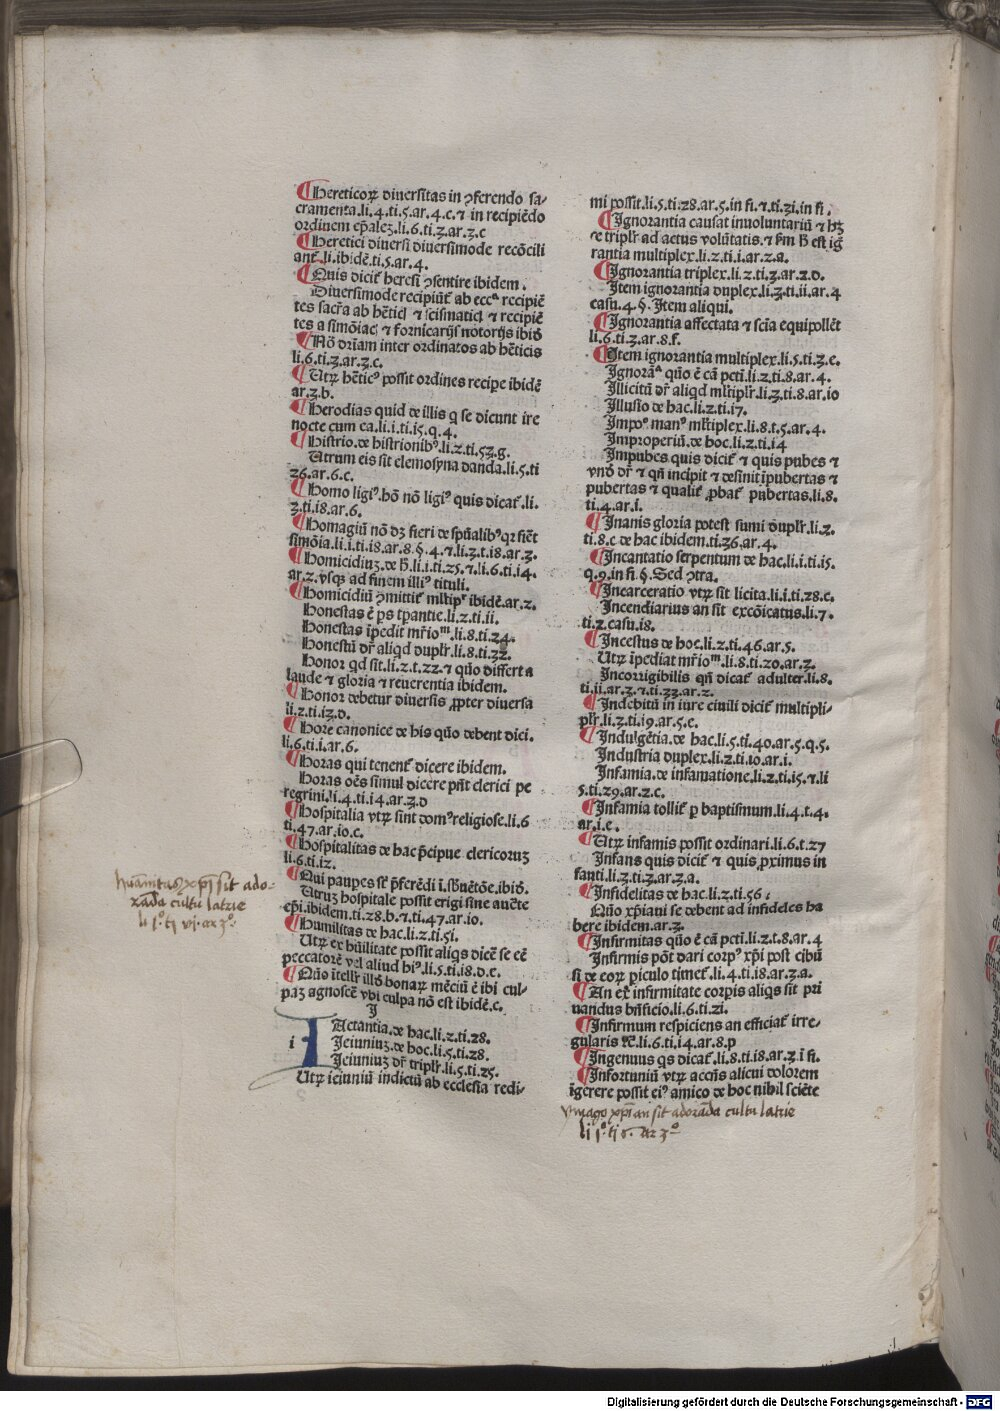 Hereticoꝝ diuersitas in ꝯferendo sa-
cramenta.li.4.ti.5.ar.4.c.⁊ in recipiẽdo
ordinem ep̃aleꝫ.li.6.ti.3.ar.3.c
Heretici diuersi diuersimode recõcili
ant᷑.li.ibidẽ.ti.5.ar.4.
Quis dicit᷑ heresi ꝯsentire ibidem.
Diuersimode recipiũt᷑ ab eccᵃ recipiẽ
tes sacr̃a ab hẽticꝭ ⁊ scismaticꝭ ⁊ recipiẽ
tes a simõiacꝭ ⁊ fornicarijs notorijs ibiđ
Nõ dr̃iam inter ordinatos ab hẽticis
li.6.ti.3.ar.3.c.
Utꝝ hẽticꝰ possit ordines recipe ibidẽ
ar.3.b.
Herodias quid de illis q̃ se dicunt ire
nocte cum ea.li.i.ti.i5.q.4.
Histrio.de histrionibꝰ.li.2.ti.53.g.
Utrum eis sit elemosyna danda.li.5.ti
26.ar.6.c.
Homo ligiꝰ.hõ nõ ligiꝰ quis dicat᷑.li.
3.ti.i8.ar.6.
Homagiũ nõ dꝫ fieri de sp̃ualibꝰ qꝛ fiet᷑
simõia.li.i.ti.i8.ar.8.§.4.⁊ li.3.t.i8.ar.3.
Homicidiuꝫ.de h̃.li.i.ti.25.⁊ li.6.ti.i4.
ar.2.vsqꝫ ad finem illiꝰ tituli.
Homicidiũ ꝯmittit᷑ ml̃tipr̃ ibidẽ.ar.2.
Honestas ẽ ꝑs tꝑantie.li.2.ti.ii.
Honestas ĩpedit mr̃ioᵐ.li.8.ti.24.
Honestũ dr̃ aliqd dupl̃r.li.8.ti.32.
Honor qd sit.li.2.t.22.⁊ quõ differt a
laude ⁊ gloria ⁊ reuerentia ibidem.
Honor debetur diuersis ꝓpter diuersa
li.2.ti.i3.d.
Hore canonice de his quõ debent dici.
li.6.ti.i.ar.6.
Horas qui tenent᷑ dicere ibidem.
Horas oẽs simul dicere pñt clerici pe
regrini.li.4.ti.i4.ar.3.d
Hospitalia vtꝝ sint domꝰ religiose.li.6
ti.47.ar.io.c.
Hospitalitas de hac p̃cipue clericoruꝫ
li.6.ti.i2.
Qui paupes st̃ p̃ferẽdi ĩ.sbuẽtõe.ibiđ.
Utruꝫ hospitale possit erigi sine aucte
ep̃i.ibidem.ti.28.b.⁊ ti.47.ar.io.
Humilitas de hac.li.2.ti.5i.
Utꝝ ex hũilitate possit aliqs dicẽ se eẽ
peccatorẽ vel aliud hiꝰ.li.5.ti.i8.d.e.
Quõ ĩtell̃r illđ bonaꝝ mẽciũ ẽ ibi cul-
paꝫ agnoscẽ vbi culpa nõ est ibidẽ.c.
J
i
IActantia.de hac.li.2.ti.28.
Jeiuniuꝫ.de hoc.li.5.ti.28.
Jeiuniuꝫ dr̃ tripl̃r.li.5.ti.25.
Utꝝ ieiuniũ indictũ ab ecclesia redi-
huãnitas xp̃i sit ado-
rãda cultu latrie
li jº. ti vj. ar 3º.
mi possit.li.5.ti.28.ar.5.in fi.⁊.ti.3i.in fi.
Ignorantia causat inuoluntariũ ⁊ hꝫ
se tripl̃r ad actus volũtatis.⁊ ẜm h̃ est ig̃
rantia multiplex.li.2.ti.i.ar.2.a.
Ignorantia triplex.li.2.ti.3.ar.2.d.
Item ignorantia duplex.li.3.ti.ii.ar.4
casu.4.§. Item aliqui.
Ignorantia affectata ⁊ scĩa equipollẽt
li.6.ti.3.ar.8.f.
Item ignorantia multiplex.li.5.ti.3.e.
Ignorãᵃ quõ ẽ cã pctĩ.li.2.ti.8.ar.4.
Illicitũ dr̃ aliqd ml̃tipl̃r.li.3.ti.8.ar.io
Illusio de hac.li.2.ti.i7.
Impoꝰ manꝰ ml̃tiplex.li.8.t.5.ar.4.
Improperiũ.de hoc.li.2.ti.i4
Impubes quis dicit᷑ ⁊ quis pubes ⁊
vnđ dr̃ ⁊ qñ incipit ⁊ desinit ĩpubertas ⁊
pubertas ⁊ qualit᷑ ꝓbat᷑ pubertas.li.8.
ti.4.ar.i.
Inanis gloria potest sumi dupl̃r.li.2.
ti.8.c de hac ibidem.ti.36.ar.4.
Incantatio serpentum de hac.li.i.ti.i5.
q.9.in fi.§. Sed ꝯtra.
Incarceratio vtꝝ sit licita.li.i.ti.28.c.
Incendiarius an sit excõicatus.li.7.
ti.2.casu.i8.
Incestus de hoc.li.2.ti.46.ar.5.
Utꝝ ĩpediat mr̃ioᵐ.li.8.ti.20.ar.3.
Incorrigibilis qñ dicat᷑ adulter.li.8.
ti.ii.ar.3.⁊.ti.33.ar.2.
Indebitũ in iure ciuili dicit᷑ multipli-
pl̃r.li.3.ti.i9.ar.5.c.
Indulgẽtia.de hac.li.5.ti.40.ar.5.q.5.
Industria duplex.li.2.ti.io.ar.i.
Infamia.de infamatione.li.2.ti.i5.⁊ li
5.ti.29.ar.2.c.
Infamia tollit᷑ ꝑ baptismum.li.4.t.4.
ar.i.e.
Utꝝ infamis possit ordinari.li.6.t.27
Infans quis dicit᷑ ⁊ quis ꝓximus in
fanti.li.2.ti.3.ar.3.a.
Infidelitas de hac.li.2.ti.56.
Quõ xp̃iani se debent ad infideles ha
bere ibidem.ar.3.
Infirmitas quõ ẽ cã pctĩ.li.2.t.8.ar.4
Infirmis põt dari corpꝰ xp̃i post cibũ
si de eoꝝ ꝑiculo timet᷑.li.4.ti.i8.ar.3.a.
An ex infirmitate corpis aliqs sit pri
uandus bñficio.li.6.ti.2i.
Infirmum respiciens an efficiat᷑ irre-
gularis ⁊c̃.li.6.ti.i4.ar.8.p
Ingenuus qs dicat᷑.li.8.ti.i8.ar.3.ĩ fi.
Infortuniũ vtꝝ accñs alicui dolorem
ĩgerere possit eiꝰ amico de hoc nihil sciẽte
ymago xp̃i an sit adorãda cultu latrie
li jº. ti 6. ar 3º
Digitalisierung gefördert durch die Deutsche Forschungsgemeinschaft - DFG